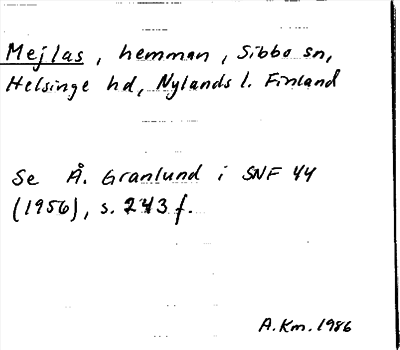 Mejlas, hemman, Sibbo sn,
Helsinge hd, Nylands l. Finland
Se Å. Granlund i SNF 44
(1956), s. 243 f.
A.Km. 1986